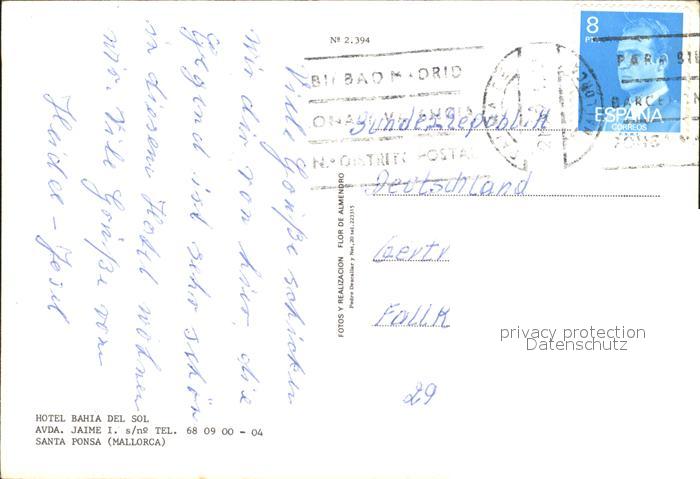 Nº 2.394
BILBAO MADRID
N.º DISTRITO POSTAL
PARA BIL
BARCELON
8
PTS
ESPAÑA
CORREOS
Viele Grüße schicken
wir dir von hier, die
Gegend ist sehr schön
in diesem Hotel wohnen
wir. Viele Grüße von
FOTOS Y REALIZACION FLOR DE ALMENDRO
Bundesrepublik
Deutschland
Gertr
Falk
29
privacy protection
Datenschutz
HOTEL BAHIA DEL SOL
AVDA. JAIME I. s/nº TEL. 68 09 00 - 04
SANTA PONSA (MALLORCA)